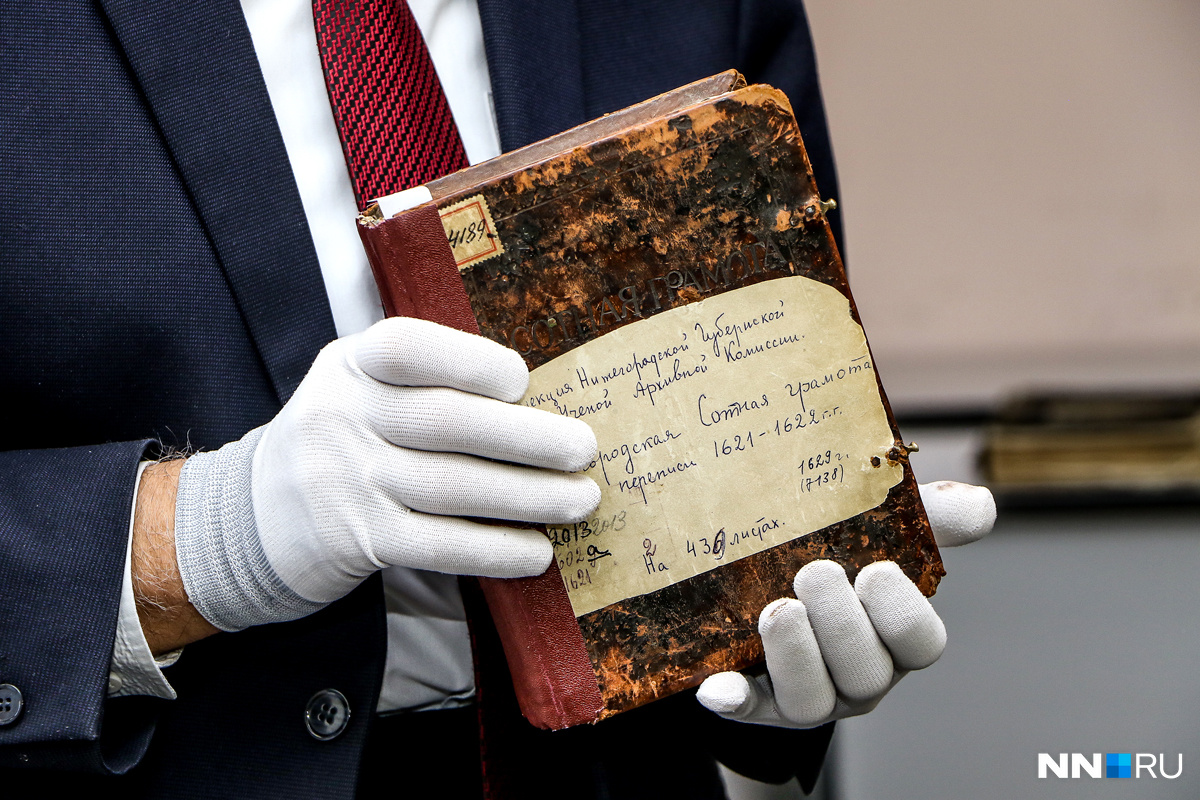 4189
СОТНАЯ ГРАМОТА
екция Нижегородской Губернской
Ученой Архивной Комиссии.
ородская Сотная грамота
переписи 1621-1622 г.г.
1629 г.
(7138)
2013 2013
602 а
1621
2
На 436 листах.
NN RU